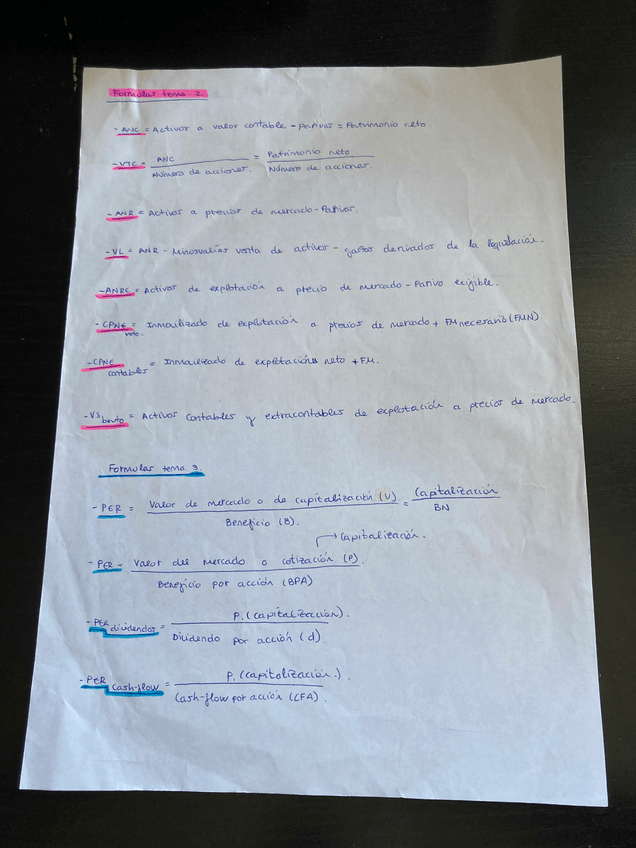 Formulas tema 2
- ANC = Activos a valor contable - Pasivos = Patrimonio neto.
- VTC = ANC / Número de acciones. = Patrimonio neto / Número de acciones.
- ANR = Activos a precios de mercado - Pasivos.
- VL = ANR - Minusvalías venta de activos - gastos derivados de la liquidación.
- ANRE = Activos de explotación a precio de mercado - Pasivo exigible.
- CPNE = Inmovilizado de explotación a precios de mercado + FM necesario (FMN).
- CPNE contables = Inmovilizado de explotación neto + FM.
- VS bruto = Activos contables y extracontables de explotación a precios de mercado.
Formulas tema 3.
- PER = Valor de mercado o de capitalización (V) / Beneficio (B). = Capitalización / BN
→ Capitalización.
- PER = Valor del mercado o cotización (P). / Beneficio por acción (BPA)
- PER dividendos = P. (capitalización). / Dividendo por acción (d)
- PER cash-flow = P. (capitalización.) / Cash-flow por acción (CFA)